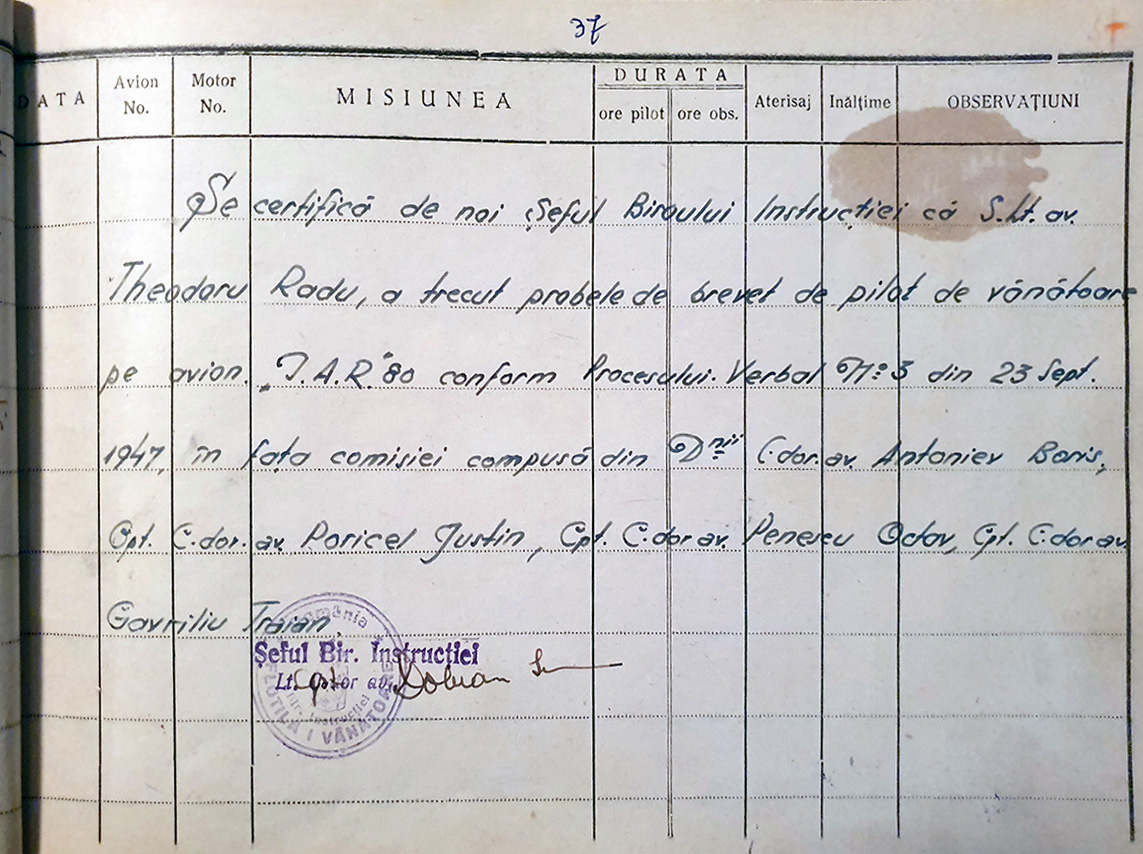 37
DATA
Avion No.
Motor No.
MISIUNEA
DURATA
ore pilot
ore obs.
Aterisaj
Inălțime
OBSERVAȚIUNI
Se certifică de noi Șeful Biroului Instrucției că S.Lt. av.
Theodoru Radu, a trecut probele de brevet de pilot de vânătoare
pe avion „I.A.R." 80 conform Procesului. Verbal No 3 din 23 Sept.
1947, în fața comisiei compusă din Dnii C-dor. av. Antoniev Boris,
Cpt. C-dor. av. Poricel Justin, Cpt. C-dor av. Penescu Octav, Cpt. C-dor av.
Gavriliu Traian
România
Șeful Bir. Instrucției
Lt. C-dor av.
Bir. Instrucției
FLOTILA I VÂNĂTOARE